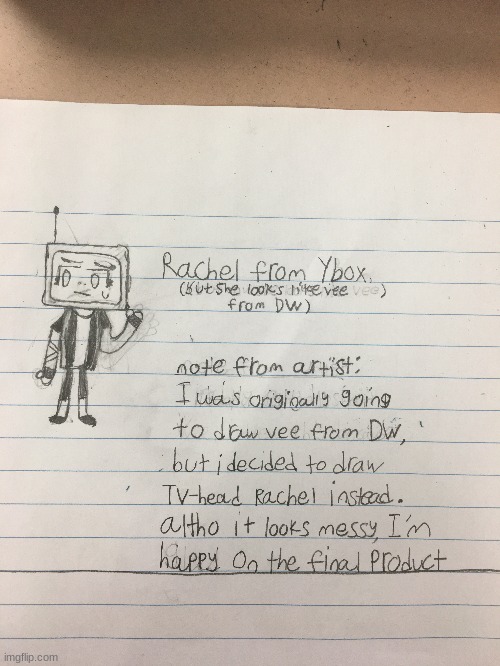 Rachel from Ybox.
(but she looks like vee
from DW)
note from artist:
I was originally going
to draw vee from DW,
but i decided to draw
TV-head Rachel instead.
altho it looks messy, I'm
happy On the final Product
imgflip.com